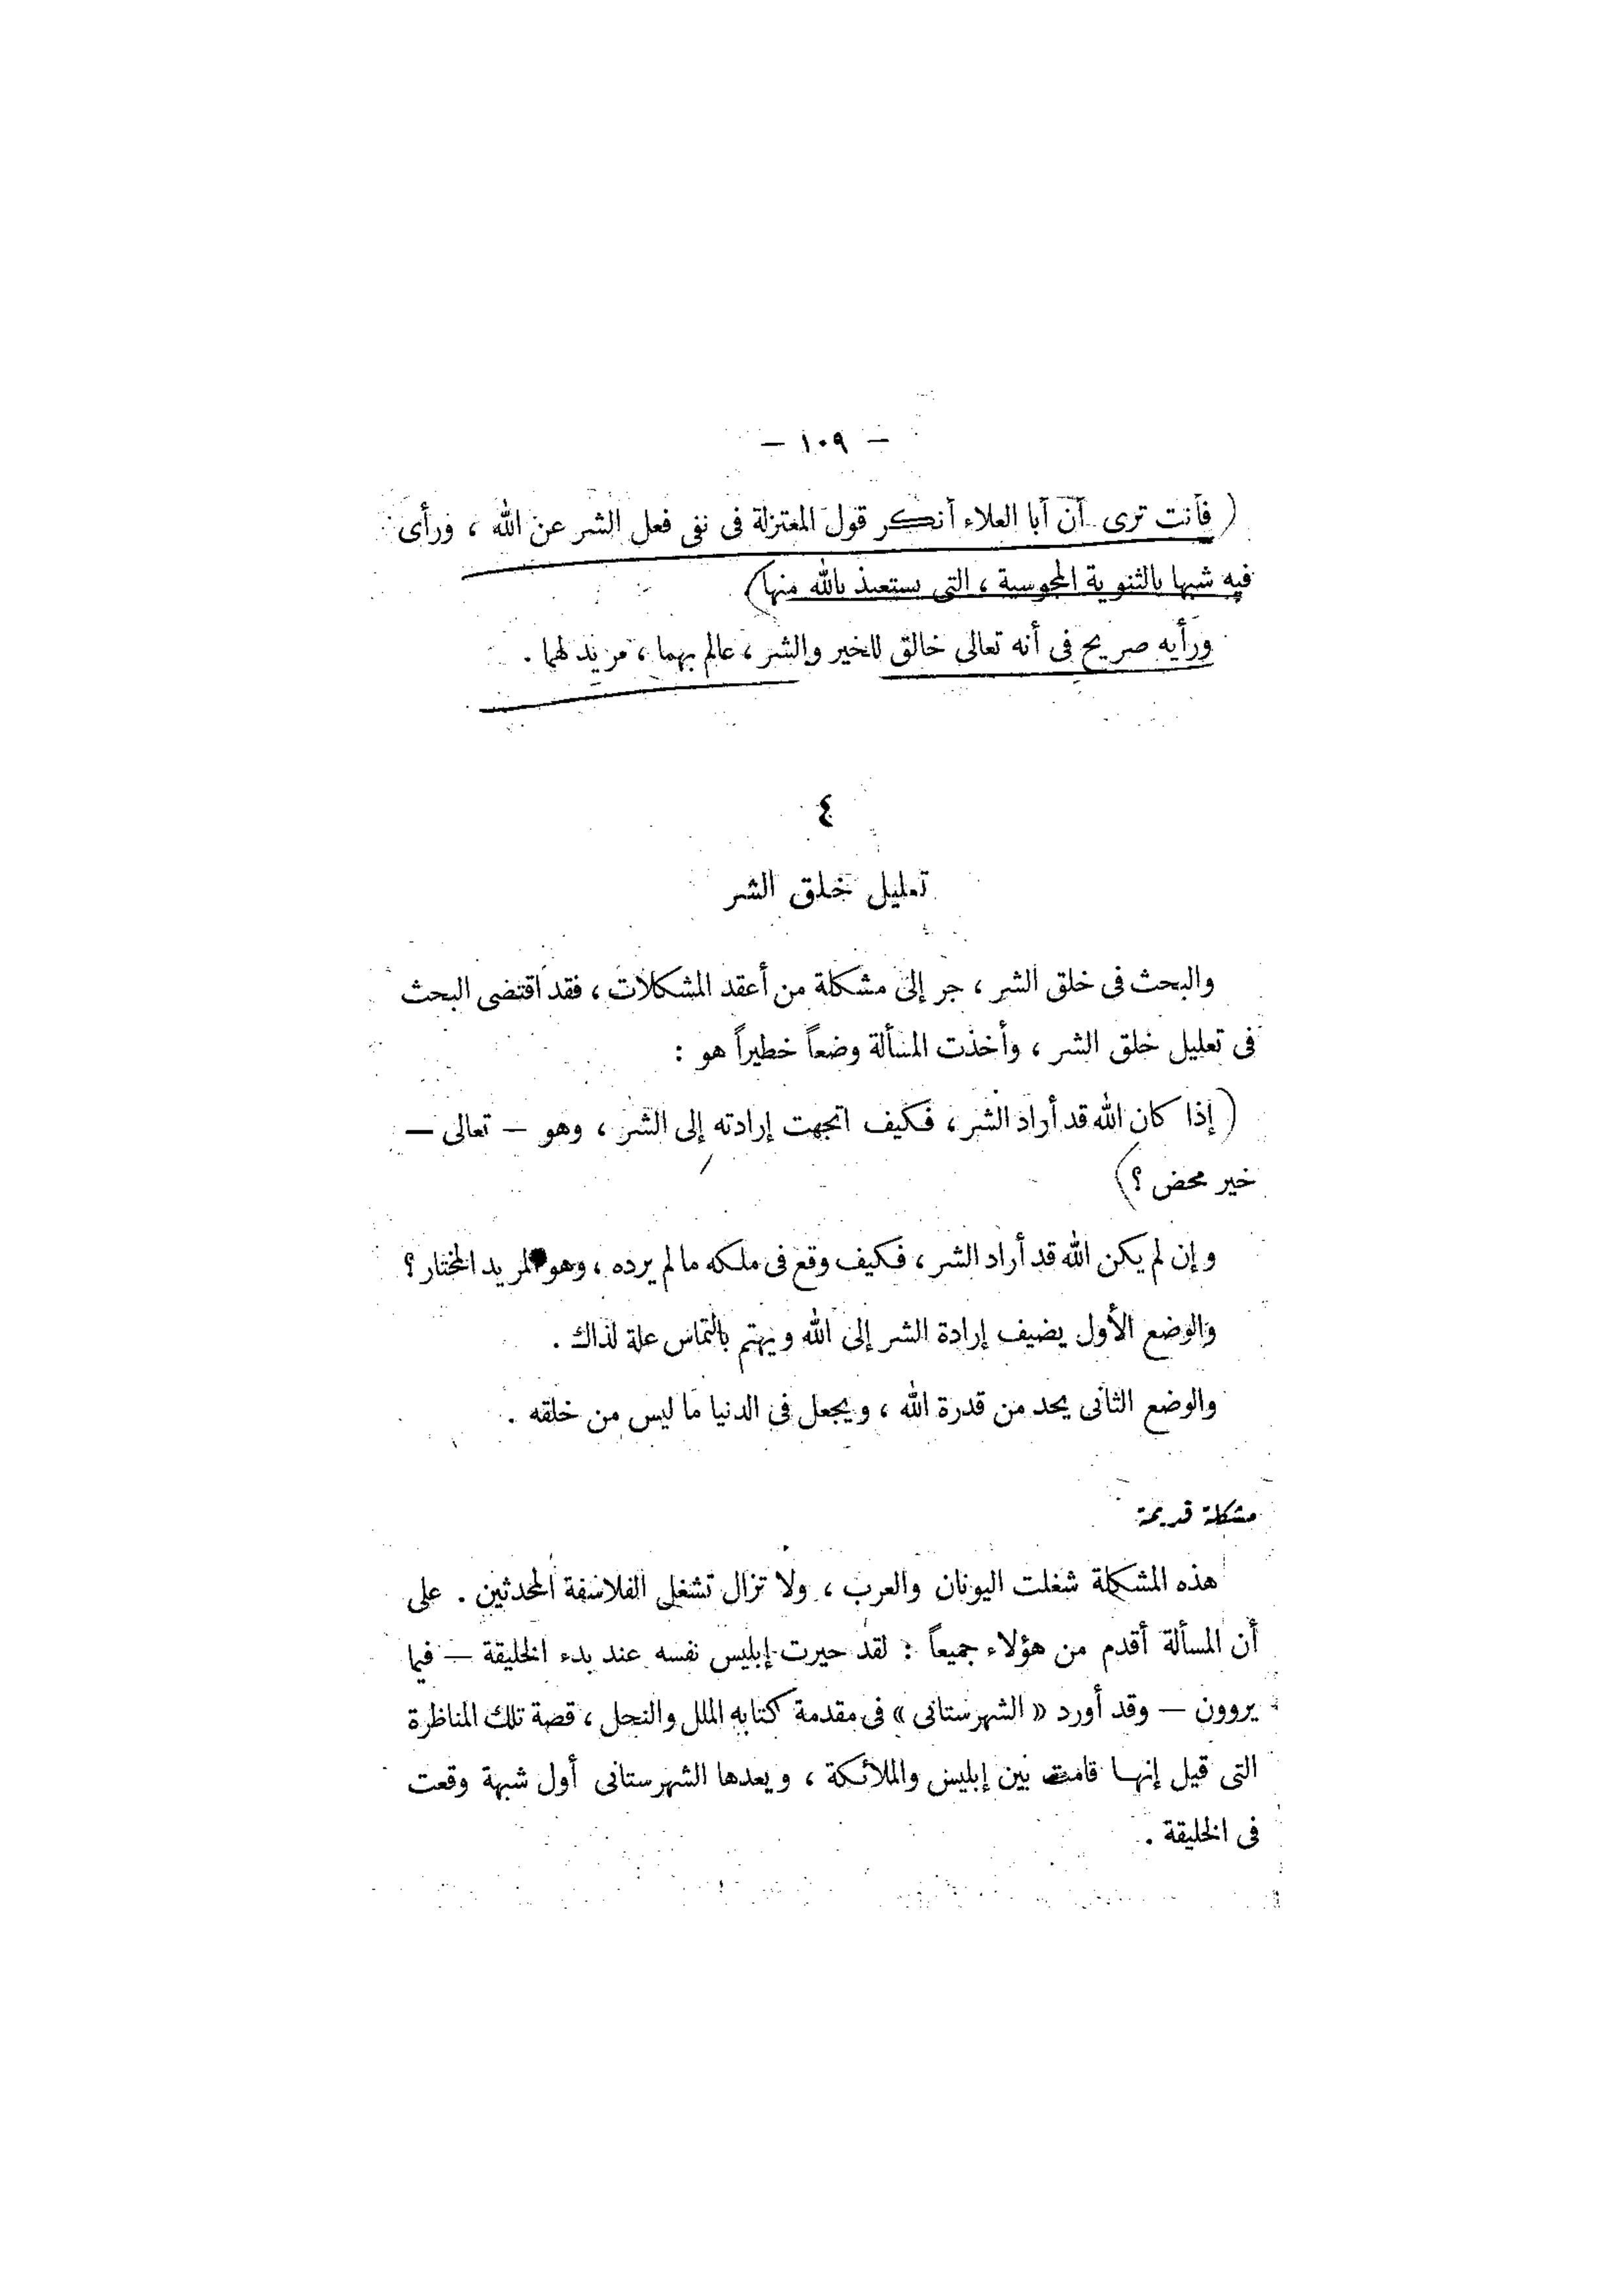 — ١٠٩ —
( فأنت ترى أن أبا العلاء أنكر قول المعتزلة فى نفى فعل الشر عن الله ، ورأى
فيه شبها بالثنوية المجوسية ، التى يستعيذ بالله منها )
ورأيه صريح فى أنه تعالى خالق للخير والشر ، عالم بهما ، مريد لهما .
٤
تعليل خلق الشر
والبحث فى خلق الشر ، جر إلى مشكلة من أعقد المشكلات ، فقد اقتضى البحث
فى تعليل خلق الشر ، وأخذت المسألة وضعاً خطيراً هو :
( إذا كان الله قد أراد الشر ، فكيف اتجهت إرادته إلى الشر ، وهو — تعالى —
خير محض ؟ )
وإن لم يكن الله قد أراد الشر ، فكيف وقع فى ملكه ما لم يرده ، وهو المريد المختار ؟
والوضع الأول يضيف إرادة الشر إلى الله ويهتم بالتماس علة لذاك .
والوضع الثانى يحد من قدرة الله ، ويجعل فى الدنيا ما ليس من خلقه .
مشكلة قديمة
هذه المشكلة شغلت اليونان والعرب ، ولا تزال تشغل الفلاسفة المحدثين . على
أن المسألة أقدم من هؤلاء جميعاً : لقد حيرت إبليس نفسه عند بدء الخليقة — فيما
يروون — وقد أورد « الشهرستانى » فى مقدمة كتابه الملل والنحل ، قصة تلك المناظرة
التى قيل إنها قامت بين إبليس والملائكة ، ويعدها الشهرستانى أول شبهة وقعت
فى الخليقة .